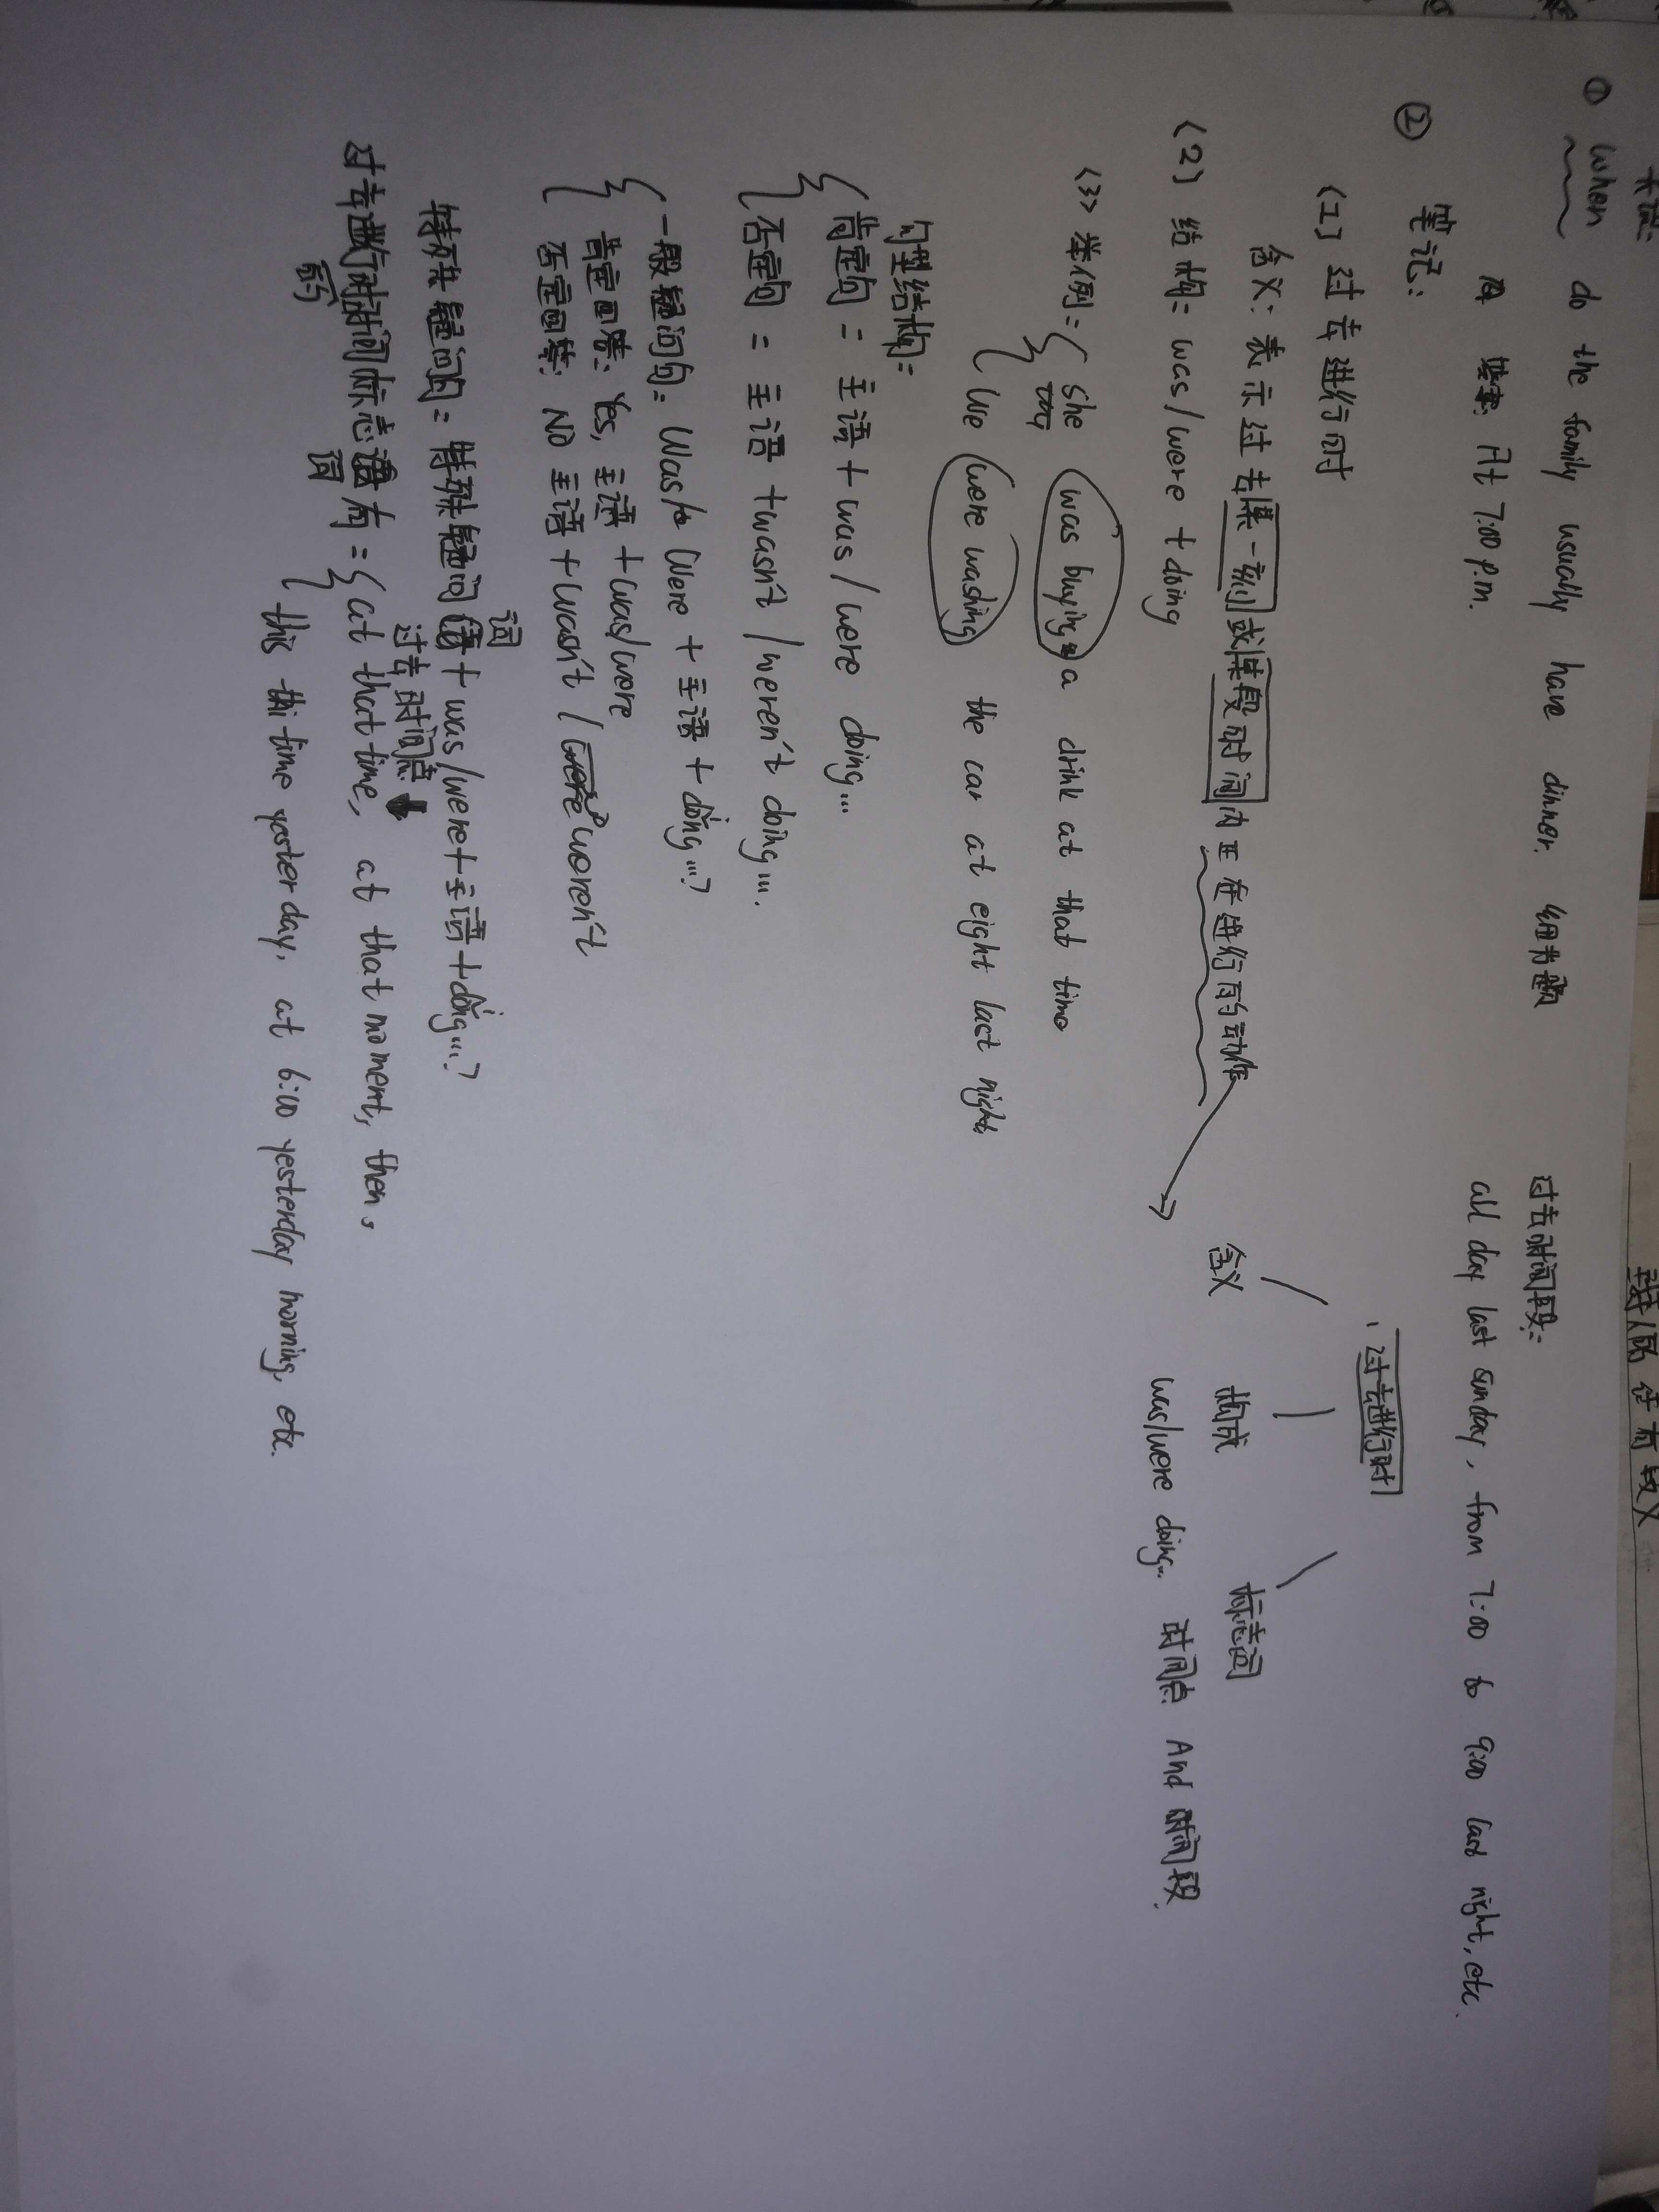 ① When do the family usually have dinner. 细节题
答案: At 7:00 p.m.
② 笔记:
(1) 过去进行时
含义: 表示过去某一刻或某段时间内正在进行的动作
(2) 结构= was/were + doing
(3) 举例= she was buying a drink at that time
We were washing the car at eight last night
句型结构=
肯定句= 主语+was/were doing...
否定句= 主语+wasn't/weren't doing....
一般疑问句= Was/Were + 主语+doing...?
肯定回答: Yes, 主语+was/were
否定回答: No 主语+wasn't/weren't
特殊疑问句= 特殊疑问词+was/were+主语+doing...?
过去时间点
过去进行时的时间标志词有= at that time, at that moment, then,
this time yesterday, at 6:00 yesterday morning, etc.
过去时间段=
all day last sunday, from 7:00 to 9:00 last night, etc.
过去进行时
含义 构成 标志词
was/were doing... 时间点 And 时间段.